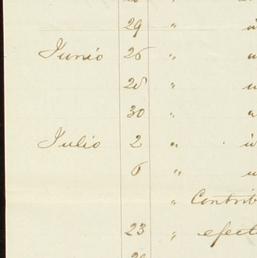 29 "
Junio 26 "
28 "
30 "
Julio 2 "
6 "
" Contrib
23 " efect